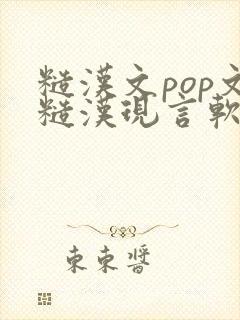 糙漢文pop文
糙漢現言軟
東東醬